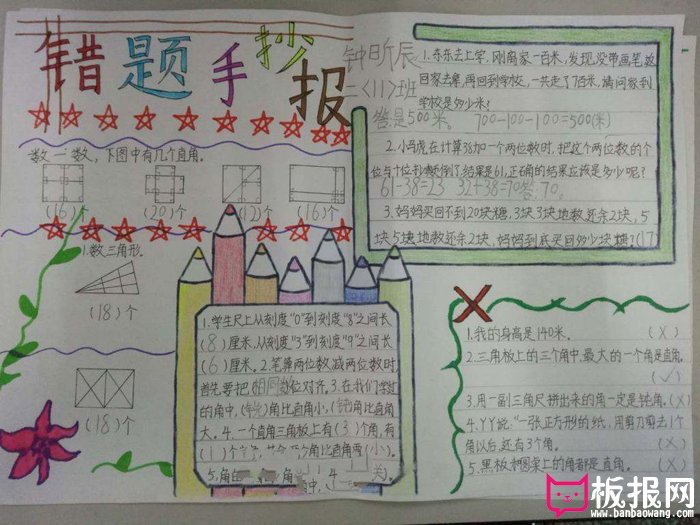 错题手抄报
钟昕辰
二〈11〉班
数一数，下图中有几个直角。
(16)个 (20)个 (12)个 (16)个
1.数三角形。
(18)个
(18)个
1.学生尺上从刻度"0"到刻度"8"之间长
(8)厘米，从刻度"3"到刻度"9"之间长
(6)厘米。2.笔算两位数减两位数时
首先要把(相同)数位对齐。3.在我们学过
的角中,(锐)角比直角小,(钝)角比直角
大。4.一个直角三角板上有(3)个角,有
(1)个
角比直角要(小)。
5.角
1.东东去上学，刚离家一百米，发现没带画笔，又
回家去拿，再回到学校，一共走了7百米，请问家到
学校是多少米？
答是500米。 700-100-100=500(米)
2.小马虎在计算38加一个两位数时，把这个两位数的个
位与十位抄颠倒了结果是61,正确的结果应该是多少呢？
61-38=23 32+38=70答.70。
3.妈妈买回不到20块糖，3块3块地数还余2块，5
块5块地数还余2块，妈妈到底买回多少块糖？(17
1.我的身高是140米。 (X)
2.三角板上的三个角中，最大的一个角是直角。
(✓)
3.用一副三角尺拼出来的角一定是钝角。(X)
4.丫丫说："一张正方形的纸，用剪刀剪去1个
角以后，还有3个角。 (X)
5.黑板和图案上的角都是直角。 (X)
板报网
www.banbaowang.com